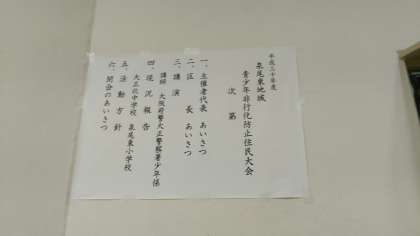 平成三十年度
泉尾東地域
青少年非行化防止住民大会
次第
一、主催者代表 あいさつ
二、区長 あいさつ
三、講演
講師 大阪府警大正警察署少年係
四、現況報告
大正北中学校 泉尾東小学校
五、活動方針
六、閉会のあいさつ